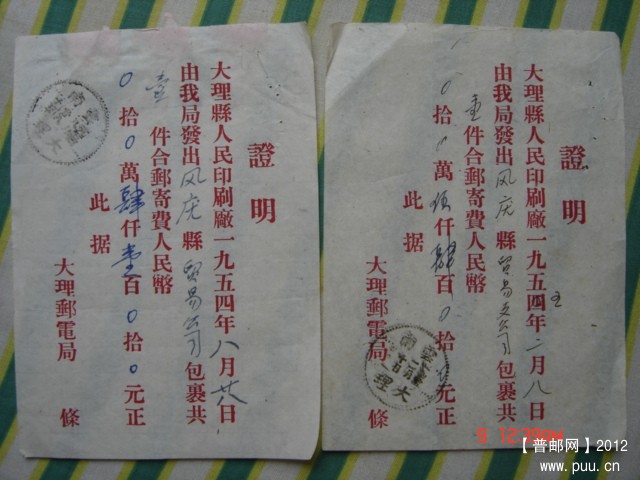 證明
大理縣人民印刷廠一九五四年二月八日
五
由我局發出风庆縣贸易支公司包裹共
壹件合郵寄費人民幣
0拾0萬伍仟肆百0拾0元正
此据
大理郵電局 條
雲南
大理
證明
大理縣人民印刷廠一九五四年八月廿八日
由我局發出风庆縣贸易公司包裹共
壹件合郵寄費人民幣
0拾0萬肆仟壹百0拾0元正
此据
大理郵電局 條
雲南
大理
9 12:39PM
【普邮网】2012
www.puu.cn